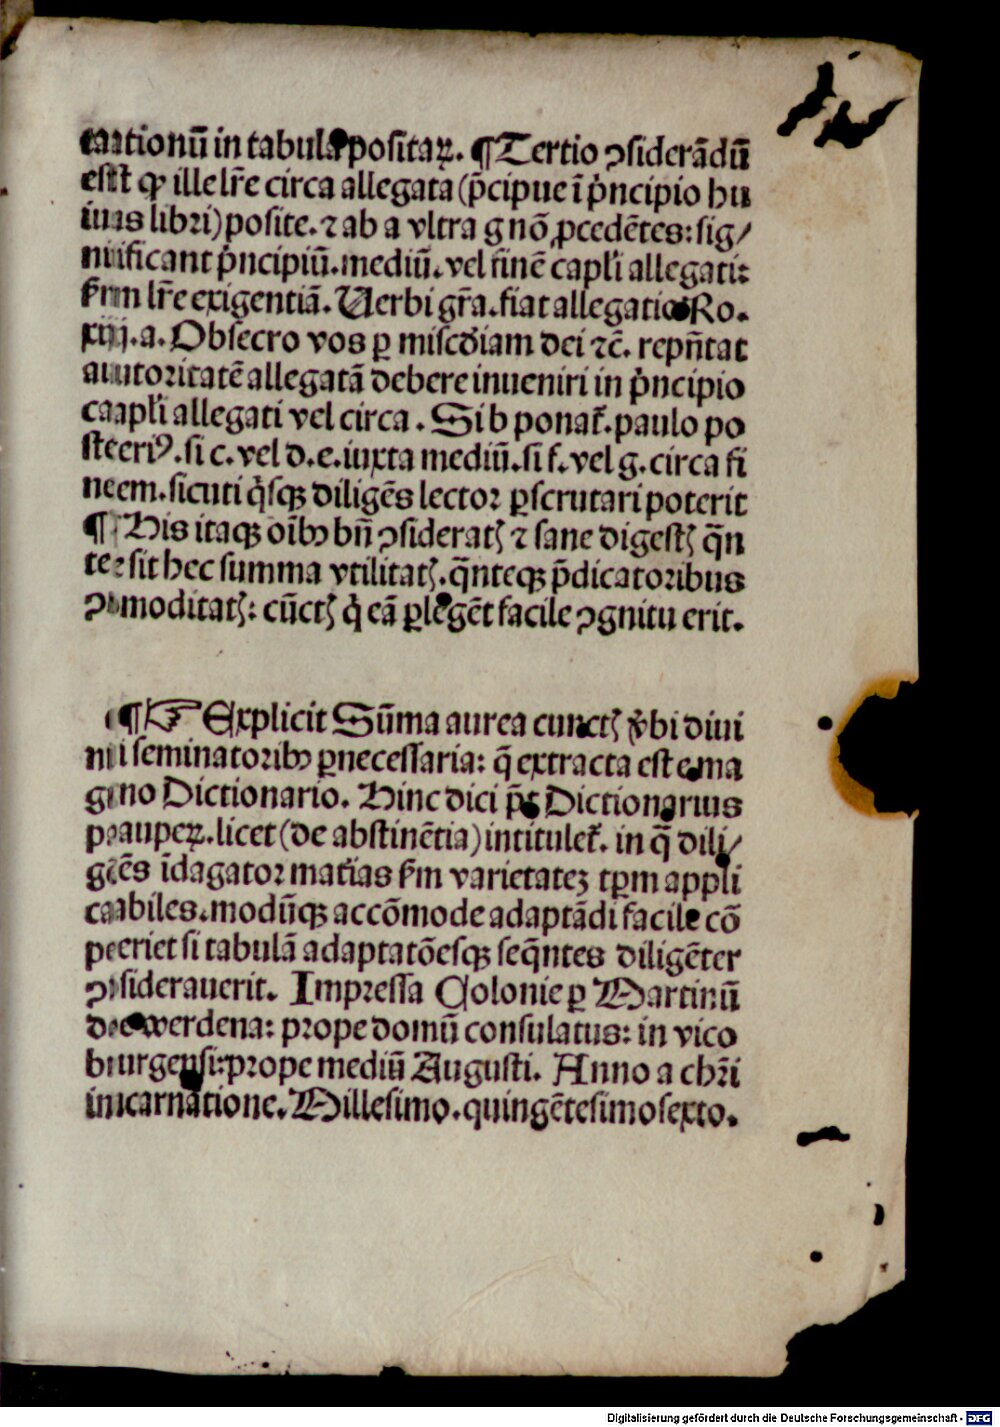 tationū in tabula positaꝝ. ¶Tertio ↄsiderādū
est ꝙ ille lr̄e circa allegata (p̄cipue ī pͥncipio hu
ius libri) posite. ⁊ ab a vltra g nō ꝓcedētes: sig/
nificant pͥncipiū. mediū. vel finē capl'i allegati:
ẜm lr̄e exigentiā. Uerbi gr̄a. fiat allegatio Ro.
xij. a. Obsecro vos ꝑ misc̄diam dei ⁊c̄. repn̄tat
autoritatē allegatā debere inueniri in pͥncipio
capl'i allegati vel circa. Si b ponat̄. paulo po
steriꝰ. si c. vel d. e. iuxta mediū. si f. vel g. circa fi
nem. sicuti qͥsqꝫ diligēs lector ꝑscrutari poterit
¶ His itaqꝫ oībꝫ bn̄ ↄsideratꝭ ⁊ sane digestꝭ q̄n
te sit hec summa vtilitatꝭ. q̄nteqꝫ p̄dicatoribus
ↄmoditatꝭ: cūctꝭ qͥ eā ꝑlegēt facile ↄgnitu erit.

¶☞ Explicit Sūma aurea cunctꝭ v̄bi diui
ni seminatoribꝫ ꝑnecessaria: q̄ extracta est e ma
gno Dictionario. Hinc dici pt̄ Dictionarius
pauperꝝ. licet (de abstinētia) intitulet̄. in q̄ dili/
gēs īdagator mat'ias ẜm varietateꝫ tꝑm appli
cabiles. modūqꝫ accōmode adaptādi facile cō
periet si tabulā adaptatōesqꝫ seq̄ntes diligēter
ↄsiderauerit. Impressa Colonie ꝑ Martinū
de werdena: prope domū consulatus: in vico
burgensi: prope mediū Augusti. Anno a chr̄i
incarnatione. Millesimo. quingētesimosexto.

Digitalisierung gefördert durch die Deutsche Forschungsgemeinschaft - DFG